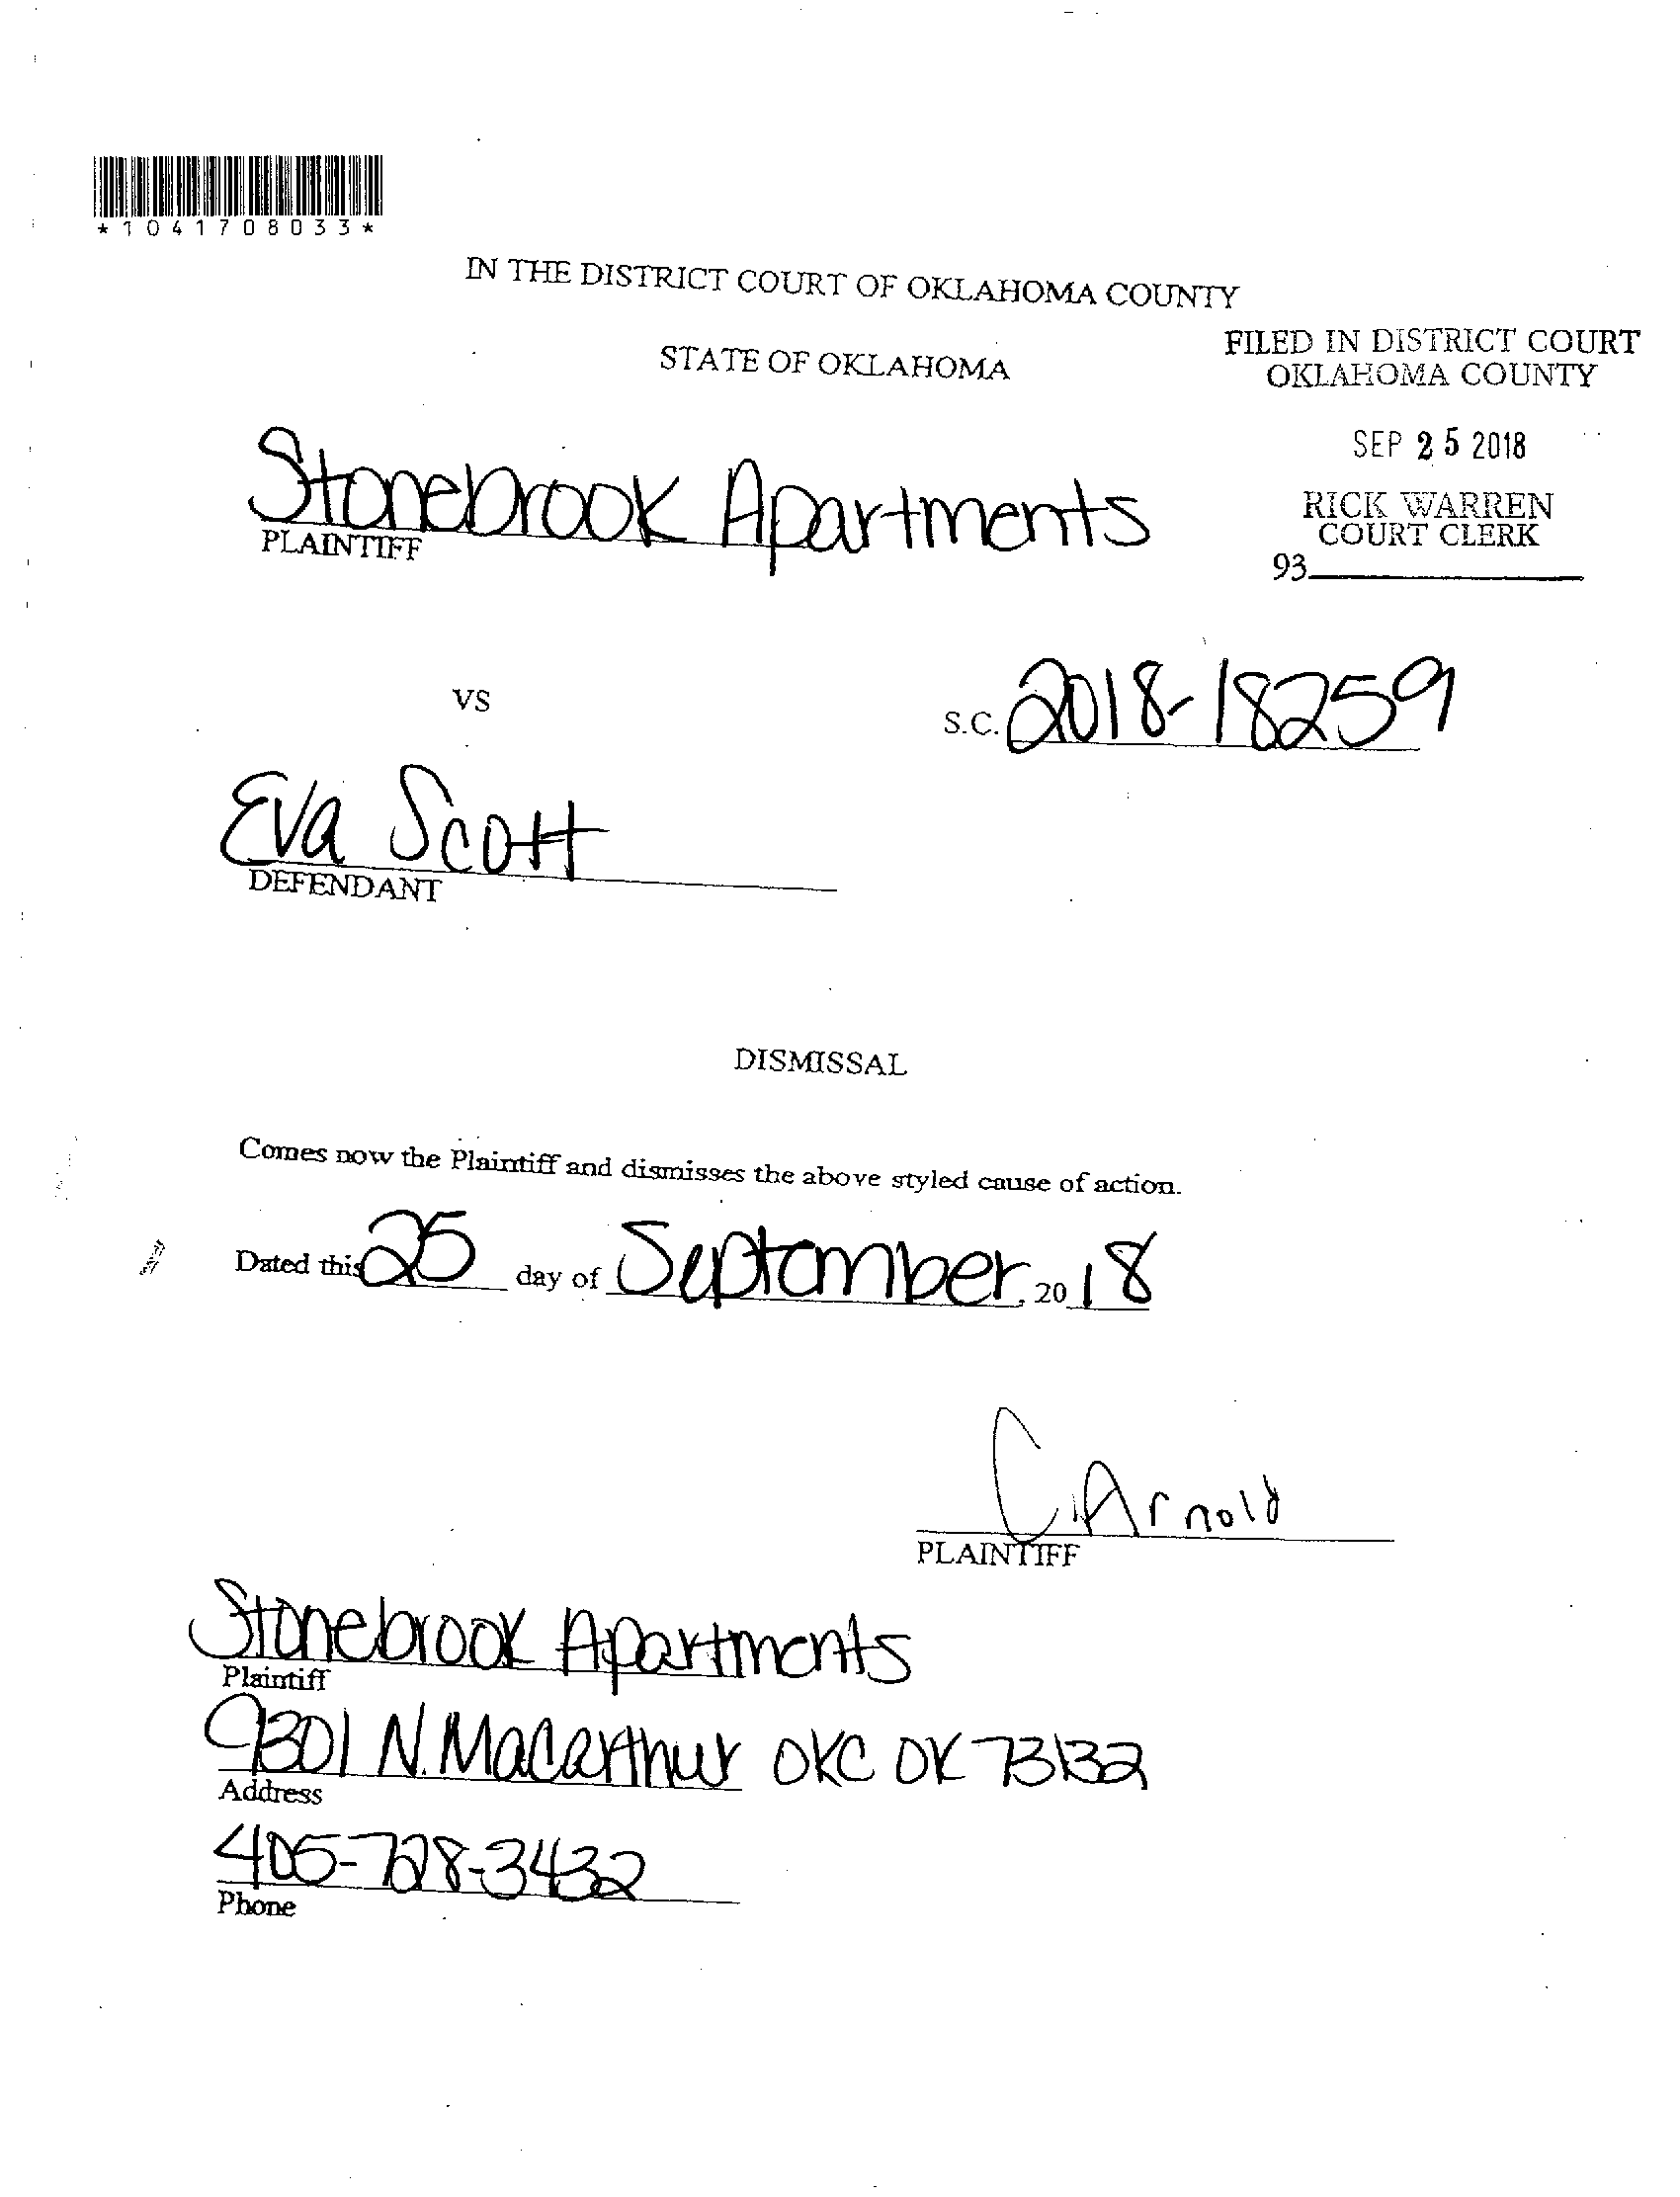 *1041708033*
IN THE DISTRICT COURT OF OKLAHOMA COUNTY
STATE OF OKLAHOMA
FILED IN DISTRICT COURT
OKLAHOMA COUNTY
SEP 25 2018
RICK WARREN
COURT CLERK
93
Stonebrook Apartments
PLAINTIFF
VS
S.C. 2018-18259
Eva Scott
DEFENDANT
DISMISSAL
Comes now the Plaintiff and dismisses the above styled cause of action.
Dated this 25 day of September, 2018
C. Arnold
PLAINTIFF
Stonebrook Apartments
Plaintiff
9301 N. Macarthur OKC OK 73132
Address
405-728-3432
Phone